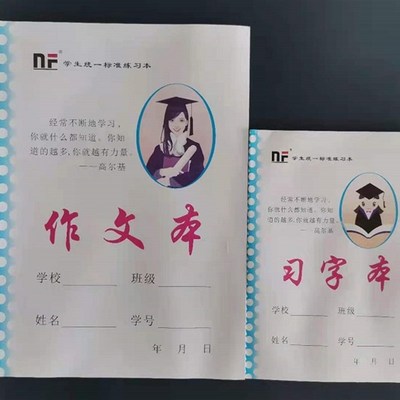 NF® 学生统一标准练习本
经常不断地学习，
你就什么都知道。你知
道的越多，你就越有力量。
——高尔基
作文本
学校 班级
姓名 学号
年 月 日
NF® 学生统一标准练习本
经常不断地学习，
你就什么都知道。你知
道的越多，你就越有力量。
——高尔基
习字本
学校 班级
姓名 学号
年 月 日